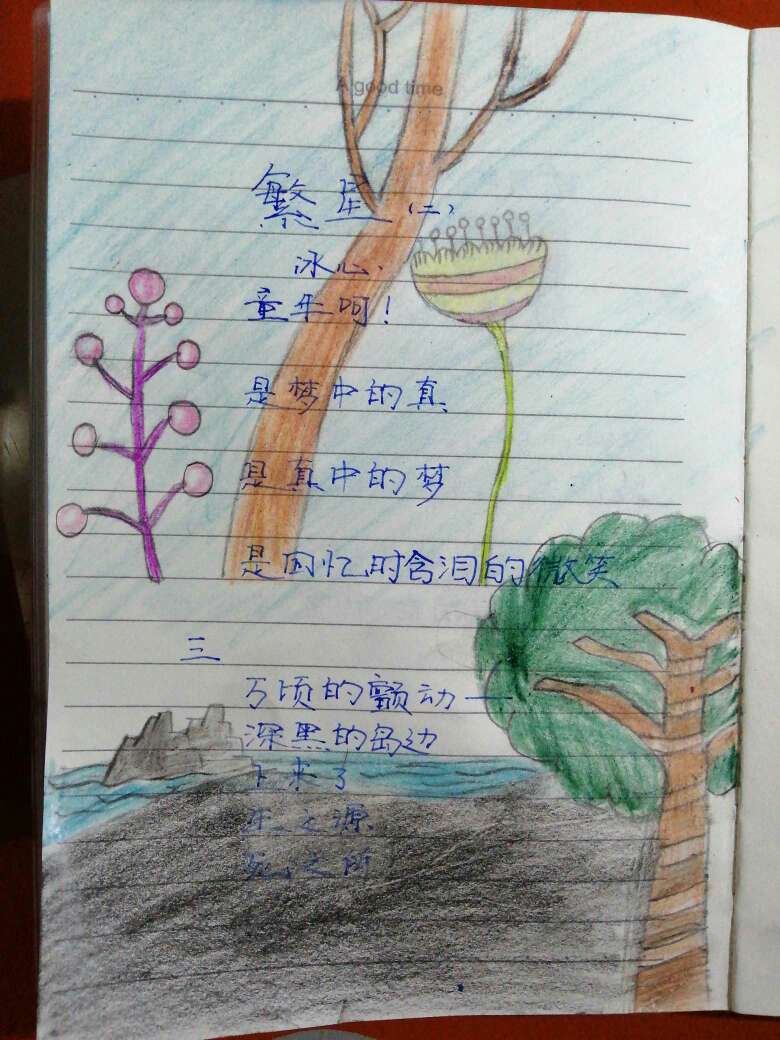 A good time
繁星(二)
冰心.
童年呵!
是梦中的真
是真中的梦
是回忆时含泪的微笑
三
万顷的颤动一
深黑的岛边
下来了
生之源
死之所